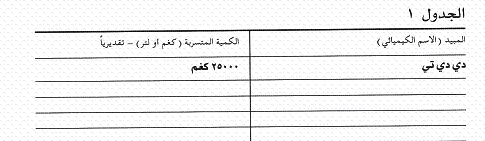 الجدول ١
المبيد (الاسم الكيميائي) الكمية المتسربة (كغم او لتر) – تقديرياً
دي دي تي ٢٥٠٠٠ كغم